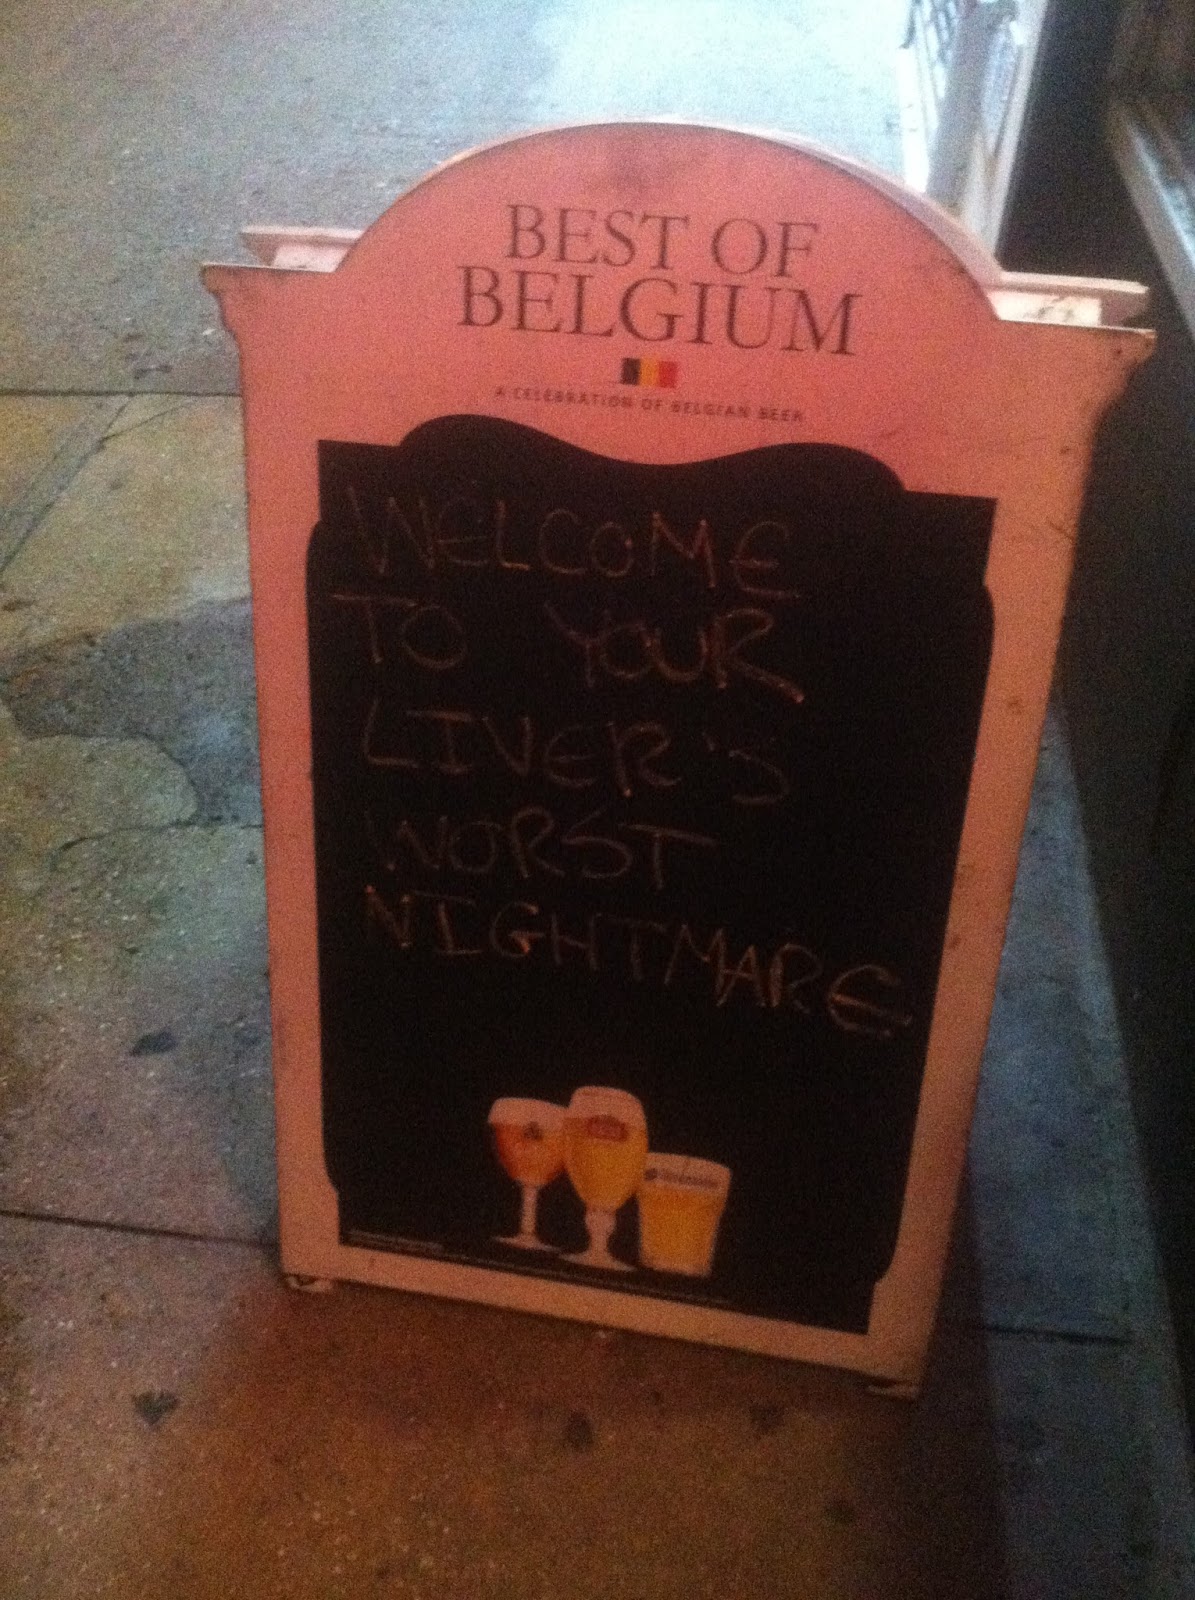 BEST OF
BELGIUM
A CELEBRATION OF BELGIAN BEER
WELCOME
TO YOUR
LIVER'S
WORST
NIGHTMARE